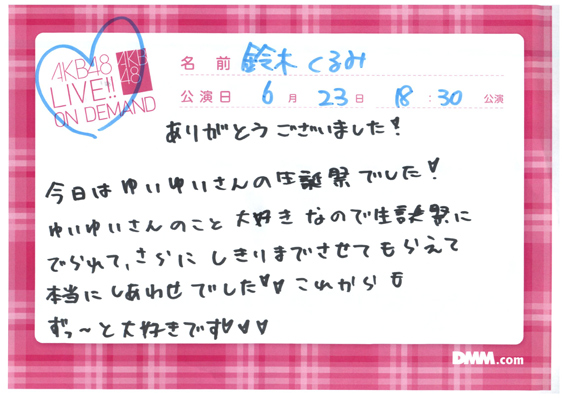 AKB48
LIVE!!
ON DEMAND
AKB
48
名 前 鈴木くるみ
公演日 6月 23日 18:30 公演
ありがとうございました!
今日はゆいゆいさんの生誕祭でした♡
ゆいゆいさんのこと大好きなので生誕祭に
でられて、さらにしきりまでさせてもらえて
本当にしあわせでした♡♡これからも
ずっ〜と大好きです♡♡♡
DMM.com